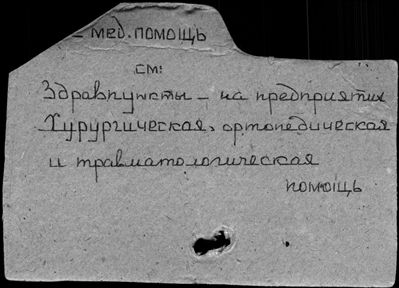 – мед. помощь
см:
Здравпункты – на предприятих
Хурургическая, ортопедическая
и травматологическая
помощь